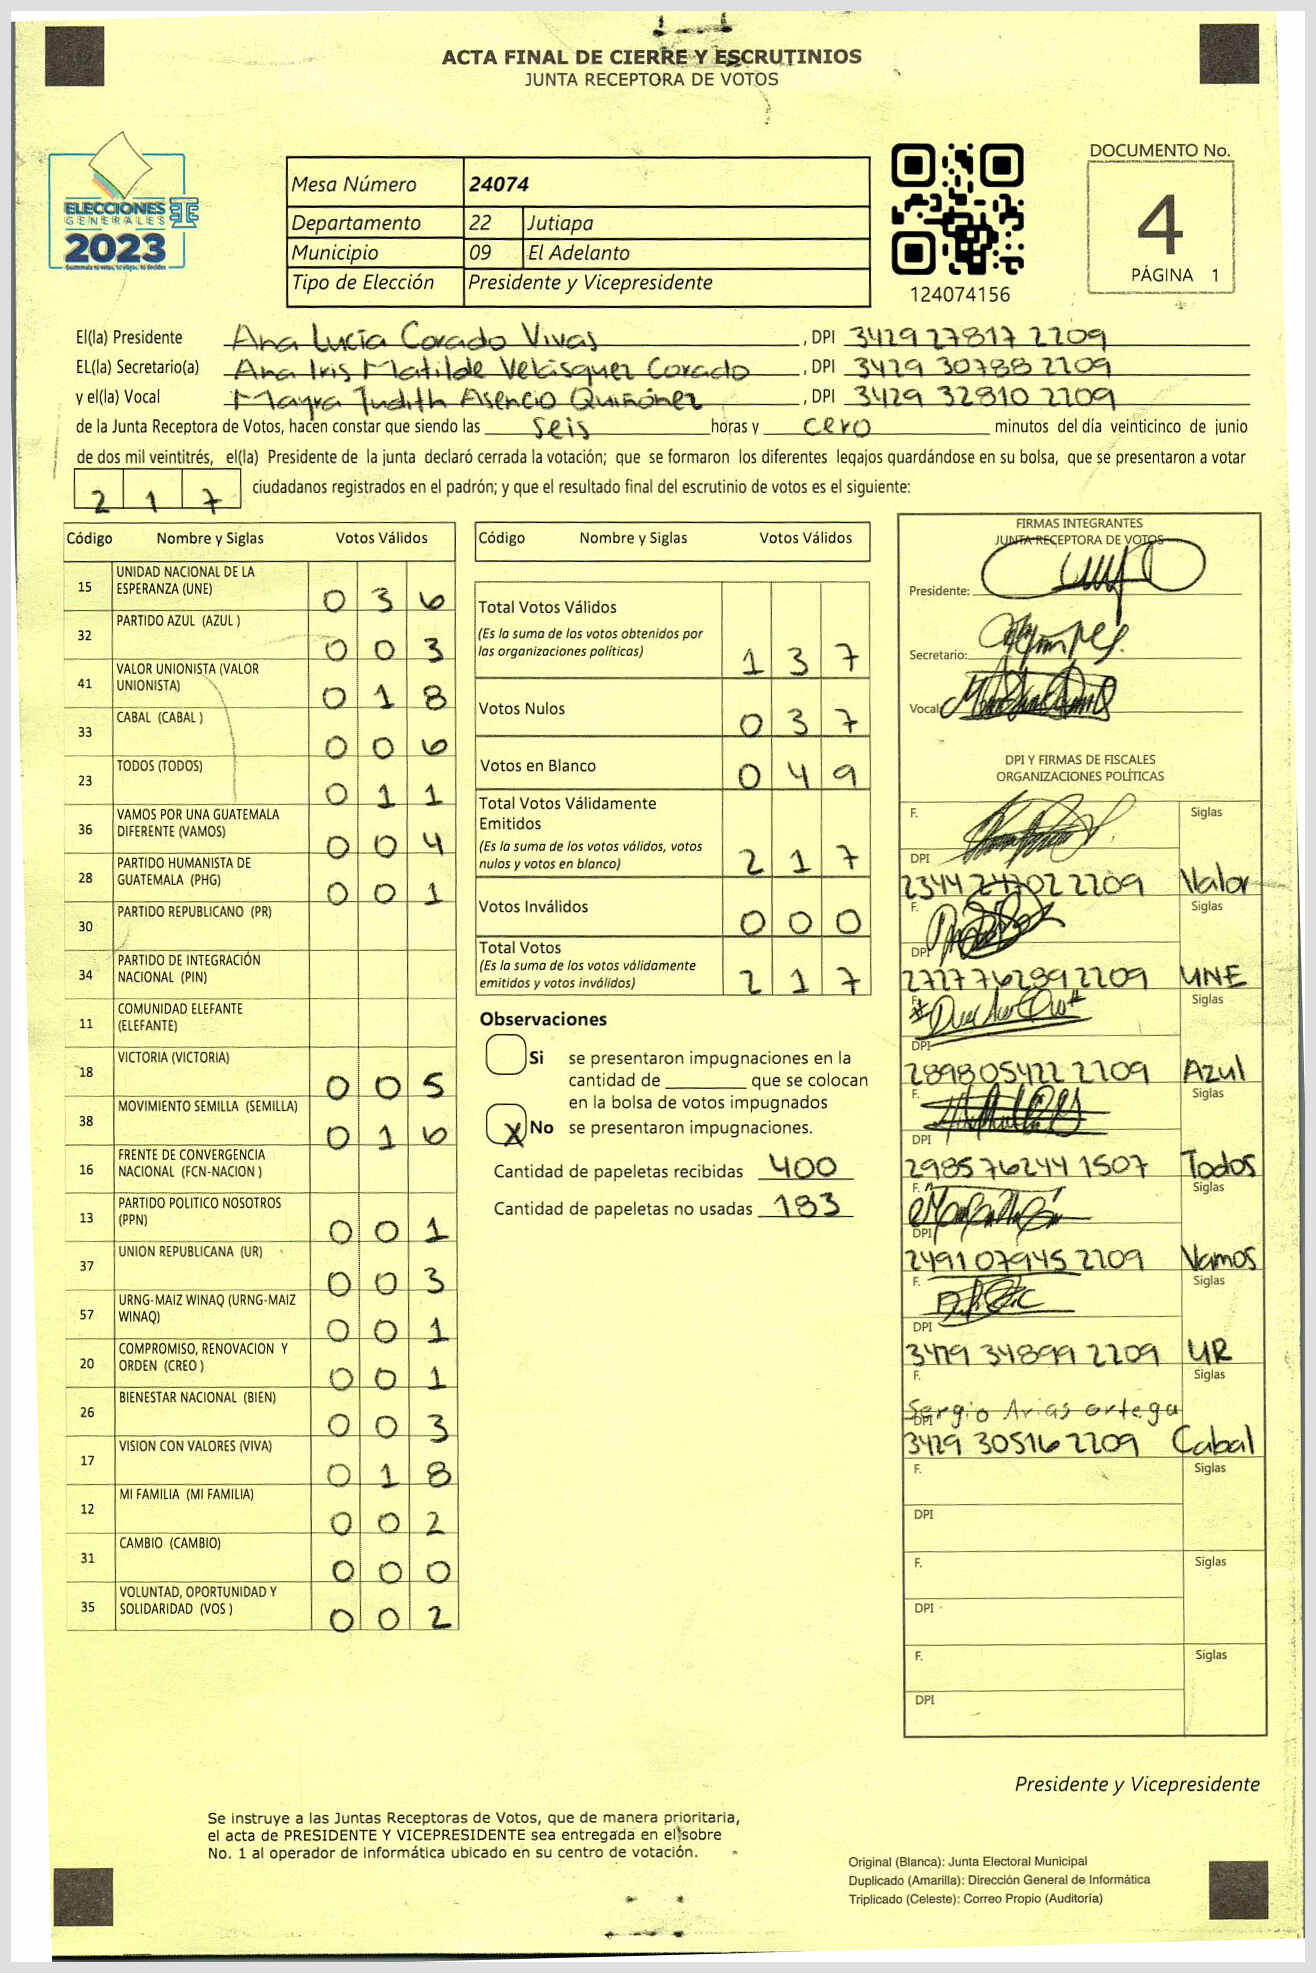 ACTA FINAL DE CIERRE Y ESCRUTINIOS
JUNTA RECEPTORA DE VOTOS
ELECCIONES
GENERALES
2023
Mesa Número 24074
Departamento 22 Jutiapa
Municipio 09 El Adelanto
Tipo de Elección Presidente y Vicepresidente
124074156
DOCUMENTO No.
4
PÁGINA 1
El(la) Presidente Ana Lucía Corado Vivas, DPI 3429 27817 2209
EL(la) Secretario(a) Ana Iris Matilde Velásquez Corado, DPI 3429 30788 2209
y el(la) Vocal Mayra Judith Asencio Quiñónez, DPI 3429 32810 2209
de la Junta Receptora de Votos, hacen constar que siendo las seis horas y cero minutos del día veinticinco de junio
de dos mil veintitrés, el(la) Presidente de la junta declaró cerrada la votación; que se formaron los diferentes legajos guardándose en su bolsa, que se presentaron a votar
217 ciudadanos registrados en el padrón; y que el resultado final del escrutinio de votos es el siguiente:
Código Nombre y Siglas Votos Válidos
15 UNIDAD NACIONAL DE LA ESPERANZA (UNE) 0 3 6
32 PARTIDO AZUL (AZUL ) 0 0 3
41 VALOR UNIONISTA (VALOR UNIONISTA) 0 1 8
33 CABAL (CABAL ) 0 0 6
23 TODOS (TODOS) 0 1 1
36 VAMOS POR UNA GUATEMALA DIFERENTE (VAMOS) 0 0 4
28 PARTIDO HUMANISTA DE GUATEMALA (PHG) 0 0 1
30 PARTIDO REPUBLICANO (PR)
34 PARTIDO DE INTEGRACIÓN NACIONAL (PIN)
11 COMUNIDAD ELEFANTE (ELEFANTE)
18 VICTORIA (VICTORIA) 0 0 5
38 MOVIMIENTO SEMILLA (SEMILLA) 0 1 6
16 FRENTE DE CONVERGENCIA NACIONAL (FCN-NACION )
13 PARTIDO POLITICO NOSOTROS (PPN) 0 0 1
37 UNION REPUBLICANA (UR) 0 0 3
57 URNG-MAIZ WINAQ (URNG-MAIZ WINAQ) 0 0 1
20 COMPROMISO, RENOVACION Y ORDEN (CREO ) 0 0 1
26 BIENESTAR NACIONAL (BIEN) 0 0 3
17 VISION CON VALORES (VIVA) 0 1 8
12 MI FAMILIA (MI FAMILIA) 0 0 2
31 CAMBIO (CAMBIO) 0 0 0
35 VOLUNTAD, OPORTUNIDAD Y SOLIDARIDAD (VOS ) 0 0 2
Código Nombre y Siglas Votos Válidos
Total Votos Válidos
(Es la suma de los votos obtenidos por
las organizaciones políticas) 1 3 7
Votos Nulos 0 3 7
Votos en Blanco 0 4 9
Total Votos Válidamente
Emitidos
(Es la suma de los votos válidos, votos
nulos y votos en blanco) 2 1 7
Votos Inválidos 0 0 0
Total Votos
(Es la suma de los votos válidamente
emitidos y votos inválidos) 2 1 7
Observaciones
Si se presentaron impugnaciones en la
cantidad de ________ que se colocan
en la bolsa de votos impugnados
X No se presentaron impugnaciones.
Cantidad de papeletas recibidas 400
Cantidad de papeletas no usadas 183
FIRMAS INTEGRANTES
JUNTA RECEPTORA DE VOTOS
Presidente:
Secretario:
Vocal
DPI Y FIRMAS DE FISCALES
ORGANIZACIONES POLÍTICAS
F. Siglas
DPI
2344 2209 Valor
F. Siglas
DPI
2727 76289 2209 UNE
F. Siglas
DPI
2898 05422 2209 Azul
F. Siglas
DPI
2985 76244 1507 Todos
F. Siglas
DPI
2491 07945 2209 Vamos
F. Siglas
DPI
34899 2209 UR
F. Siglas
Sergio Arias Ortega
DPI
3429 30516 2209 Cabal
F. Siglas
DPI
F. Siglas
DPI
F. Siglas
DPI
Presidente y Vicepresidente
Se instruye a las Juntas Receptoras de Votos, que de manera prioritaria,
el acta de PRESIDENTE Y VICEPRESIDENTE sea entregada en el sobre
No. 1 al operador de informática ubicado en su centro de votación.
Original (Blanca): Junta Electoral Municipal
Duplicado (Amarilla): Dirección General de Informática
Triplicado (Celeste): Correo Propio (Auditoría)